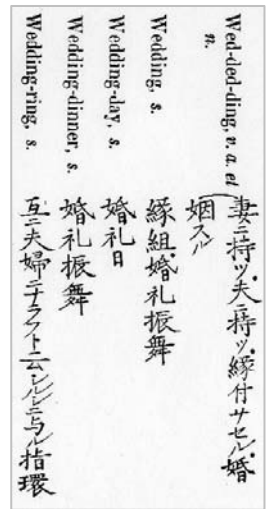 Wed-ded-ding, v. a. et n. 妻ニ持ツ.夫ニ持ツ.縁付サセル.婚姻スル
Wedding, s. 縁組.婚礼振舞
Wedding-day, s. 婚礼日
Wedding-dinner, s. 婚礼振舞
Wedding-ring, s. 互ニ夫婦ニナラフト云シルシニ与ル指環